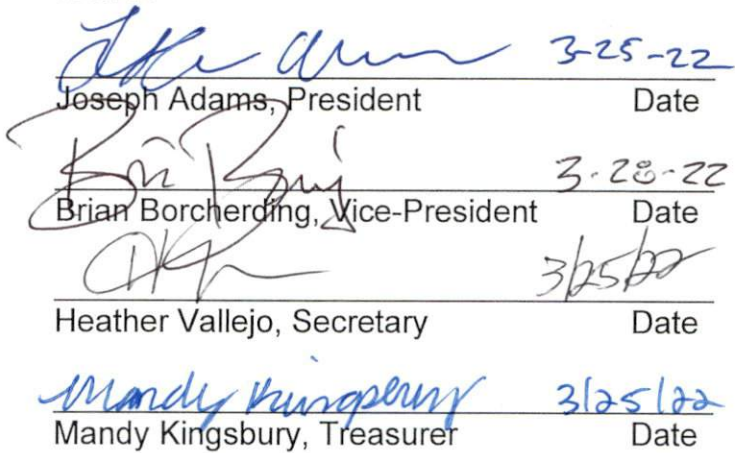 3-25-22
Joseph Adams, President Date
3-28-22
Brian Borcherding, Vice-President Date
3/25/22
Heather Vallejo, Secretary Date
Mandy Kingsbury 3/25/22
Mandy Kingsbury, Treasurer Date